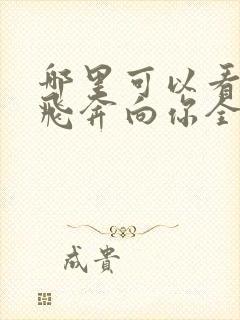 哪里可以看
飞奔向你全
成貴